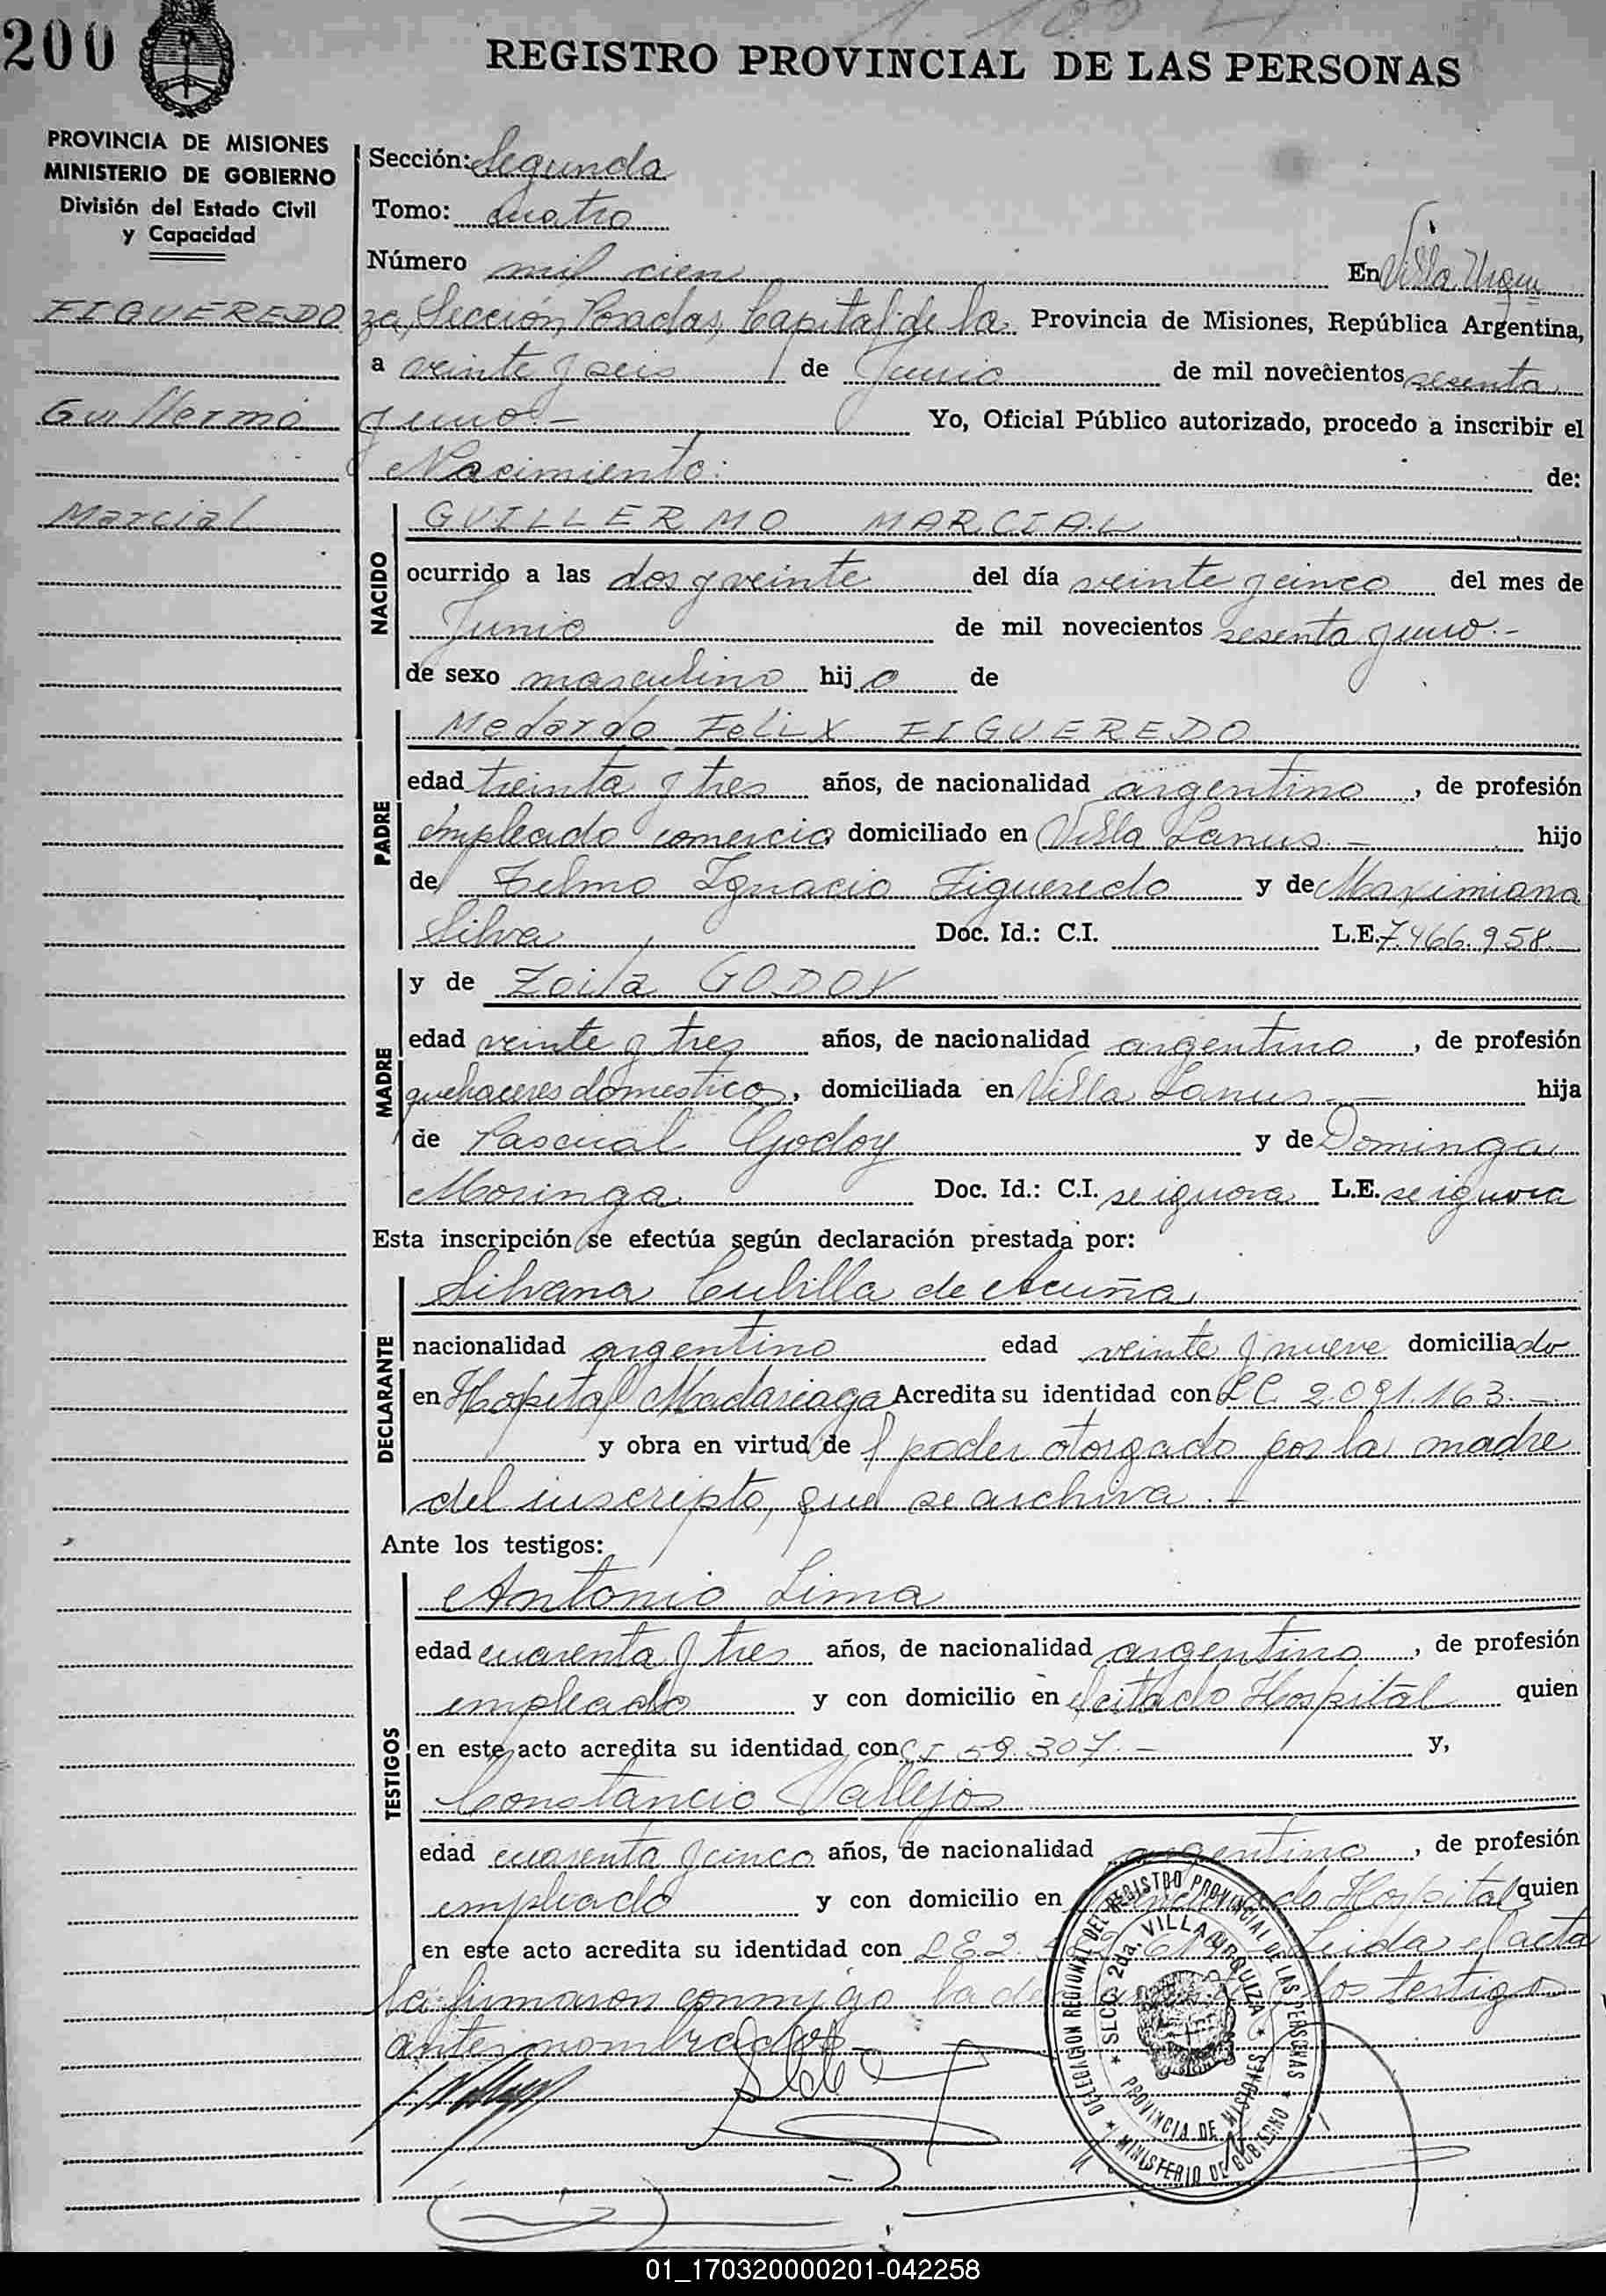 200
REGISTRO PROVINCIAL DE LAS PERSONAS
PROVINCIA DE MISIONES
MINISTERIO DE GOBIERNO
División del Estado Civil
y Capacidad
FIGUEREDO
Guillermo
Marcial
Sección: Segunda
Tomo: Cuatro
Número mil cien En Villa Urqui
za, Sección Posadas, Capital de la Provincia de Misiones, República Argentina,
a veinte y seis de Junio de mil novecientos sesenta
y uno.- Yo, Oficial Público autorizado, procedo a inscribir el
Nacimiento: de:
NACIDO
GUILLERMO MARCIAL
ocurrido a las dos y veinte del día veinte y cinco del mes de
Junio de mil novecientos sesenta y uno.-
de sexo masculino hijo de
PADRE
Medardo Felix FIGUEREDO
edad treinta y tres años, de nacionalidad argentino, de profesión
empleado comercio domiciliado en Villa Lanus.- hijo
de Telmo Ignacio Figueredo y de Maximiana
Silva Doc. Id.: C.I. L.E. 7466.958.
MADRE
y de Zoila GODOY
edad veinte y tres años, de nacionalidad argentino, de profesión
quehaceres domestico, domiciliada en Villa Lanus.- hija
de Pascual Godoy y de Dominga
Moringa Doc. Id.: C.I. se ignora L.E. se ignora
Esta inscripción se efectúa según declaración prestada por:
DECLARANTE
Silvana Cubilla de Acuña
nacionalidad argentino edad veinte y nueve domiciliado
en Hospital Madariaga Acredita su identidad con L C. 2.091.163.-
y obra en virtud de l poder otorgado por la madre
del inscripto, que se archiva.-
Ante los testigos:
TESTIGOS
Antonio Lima
edad cuarenta y tres años, de nacionalidad argentino, de profesión
empleado y con domicilio en el citado Hospital quien
en este acto acredita su identidad con C I 59.307.- y,
Constancio Vallejos
edad cuarenta y cinco años, de nacionalidad argentino, de profesión
empleado y con domicilio en Hospital quien
en este acto acredita su identidad con L E 2. Leida el acta
la firmaron conmigo la los testigo
antes nombrados.-
DELEGACION REGIONAL DEL REGISTRO PROVINCIAL DE LAS PERSONAS
★ MINISTERIO DE GOBIERNO ★
★ SECC. 2da. VILLA URQUIZA ★
PROVINCIA DE MISIONES
01_170320000201-042258